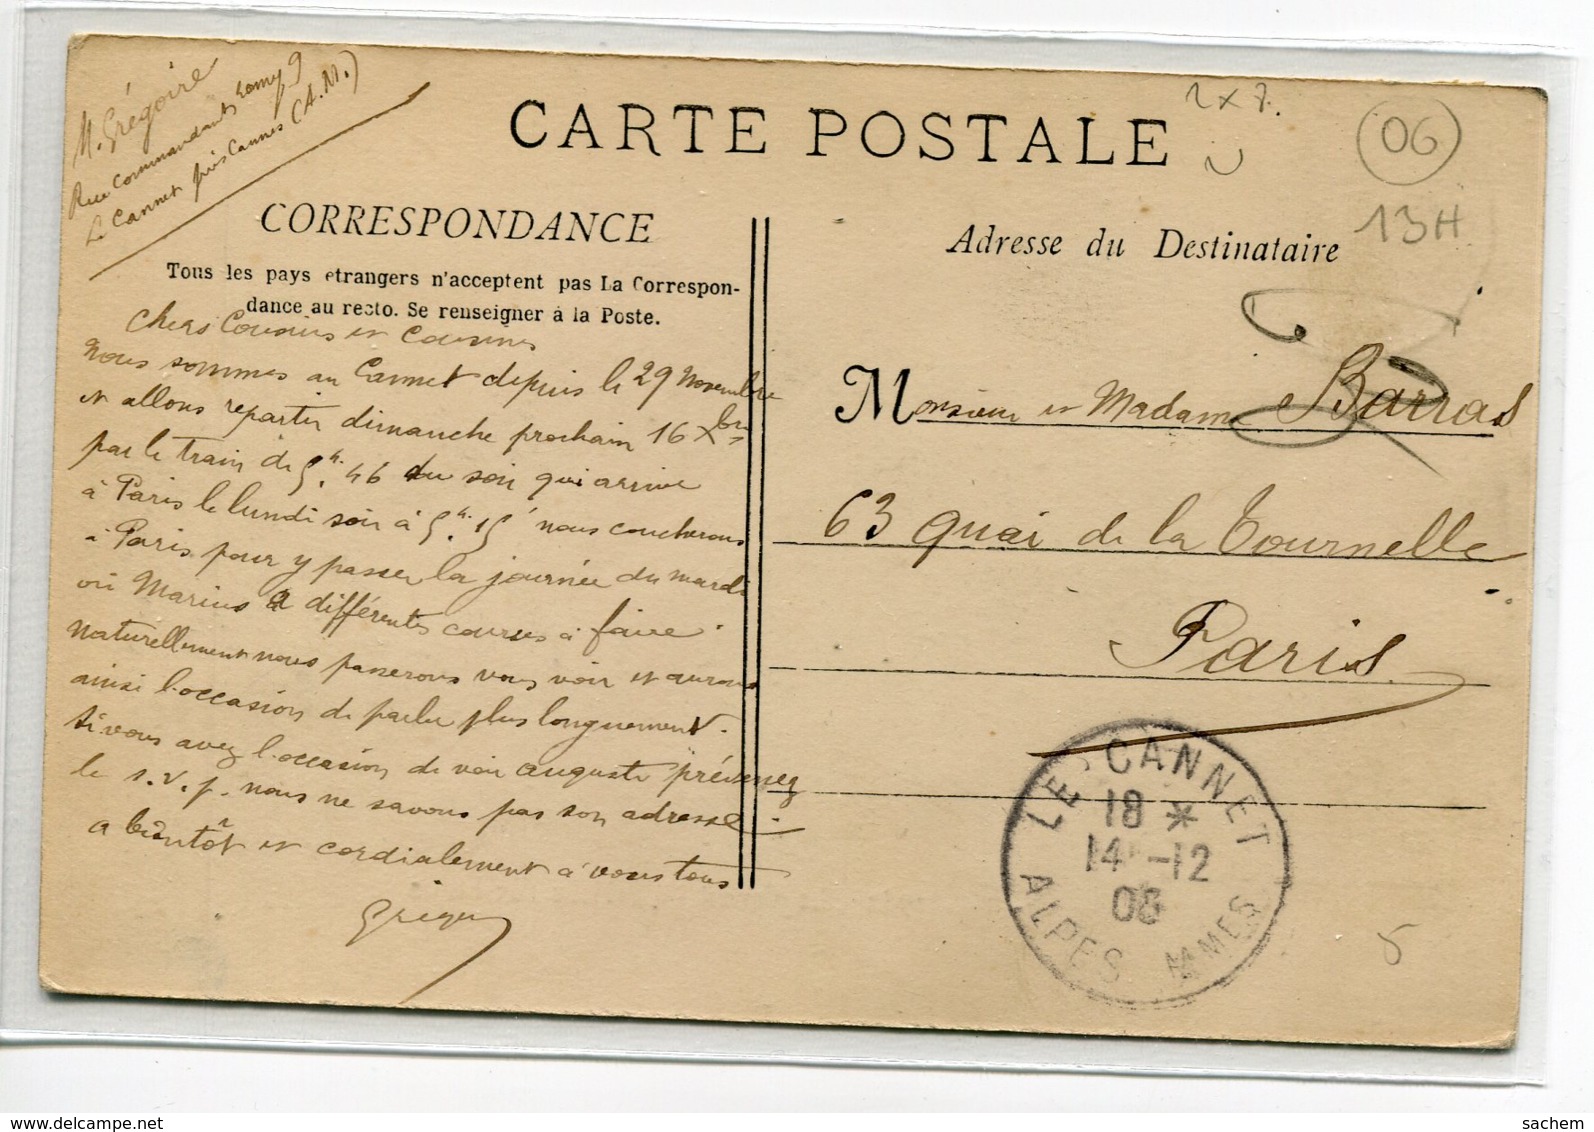 M. Grégoire
Rue Commandant Lamy 9
Le Cannet près Cannes (A.M.)
CARTE POSTALE
2 x 7.
06
13H
CORRESPONDANCE
Adresse du Destinataire
Tous les pays etrangers n'acceptent pas La Correspon-
dance au recto. Se renseigner à la Poste.
Chers Cousins et Cousines
Nous sommes au Cannet depuis le 29 Novembre
et allons repartir dimanche prochain 16 Xbre
par le train de 5h. 46 du soir qui arrive
à Paris le lundi soir à 5h. 15 nous coucherons
à Paris pour y passer la journée du mardi
où Marius a différentes courses à faire.
naturellement nous passerons vous voir et aurons
ainsi l'occasion de parler plus longuement.
Si vous avez l'occasion de voir auguste prévenez
le s.v.p. nous ne savons pas son adresse.
a bientôt et cordialement à vous tous
Monsieur et Madame Barras
63 Quai de la Tournelle
Paris
LE CANNET
18 *
14 -12
08
ALPES MMES
5
sachem